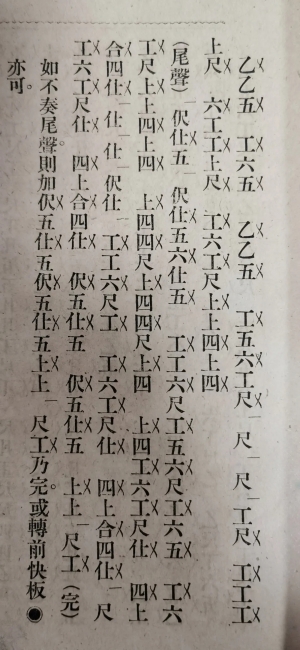 乙乙五 工六五 乙乙五 工五六工尺 尺 尺 工尺 工工工
上尺 六工工上尺 工六工尺上上四上四
(尾聲) 伬仕五 伬仕五六仕五 工工六尺工五六尺工六五 工六
工尺上上四上四 上四四尺上四四尺上四 上四工六工尺仕 四上
合四仕 仕 仕 伬仕 工工六尺工 工六工尺仕 四上合四仕 尺
工六工尺仕 四上合四仕 伬五仕五 伬五仕五 上上 尺工(完)
如不奏尾聲。則加伬五仕五伬五仕五上上 尺工乃完。或轉前快板
亦可。